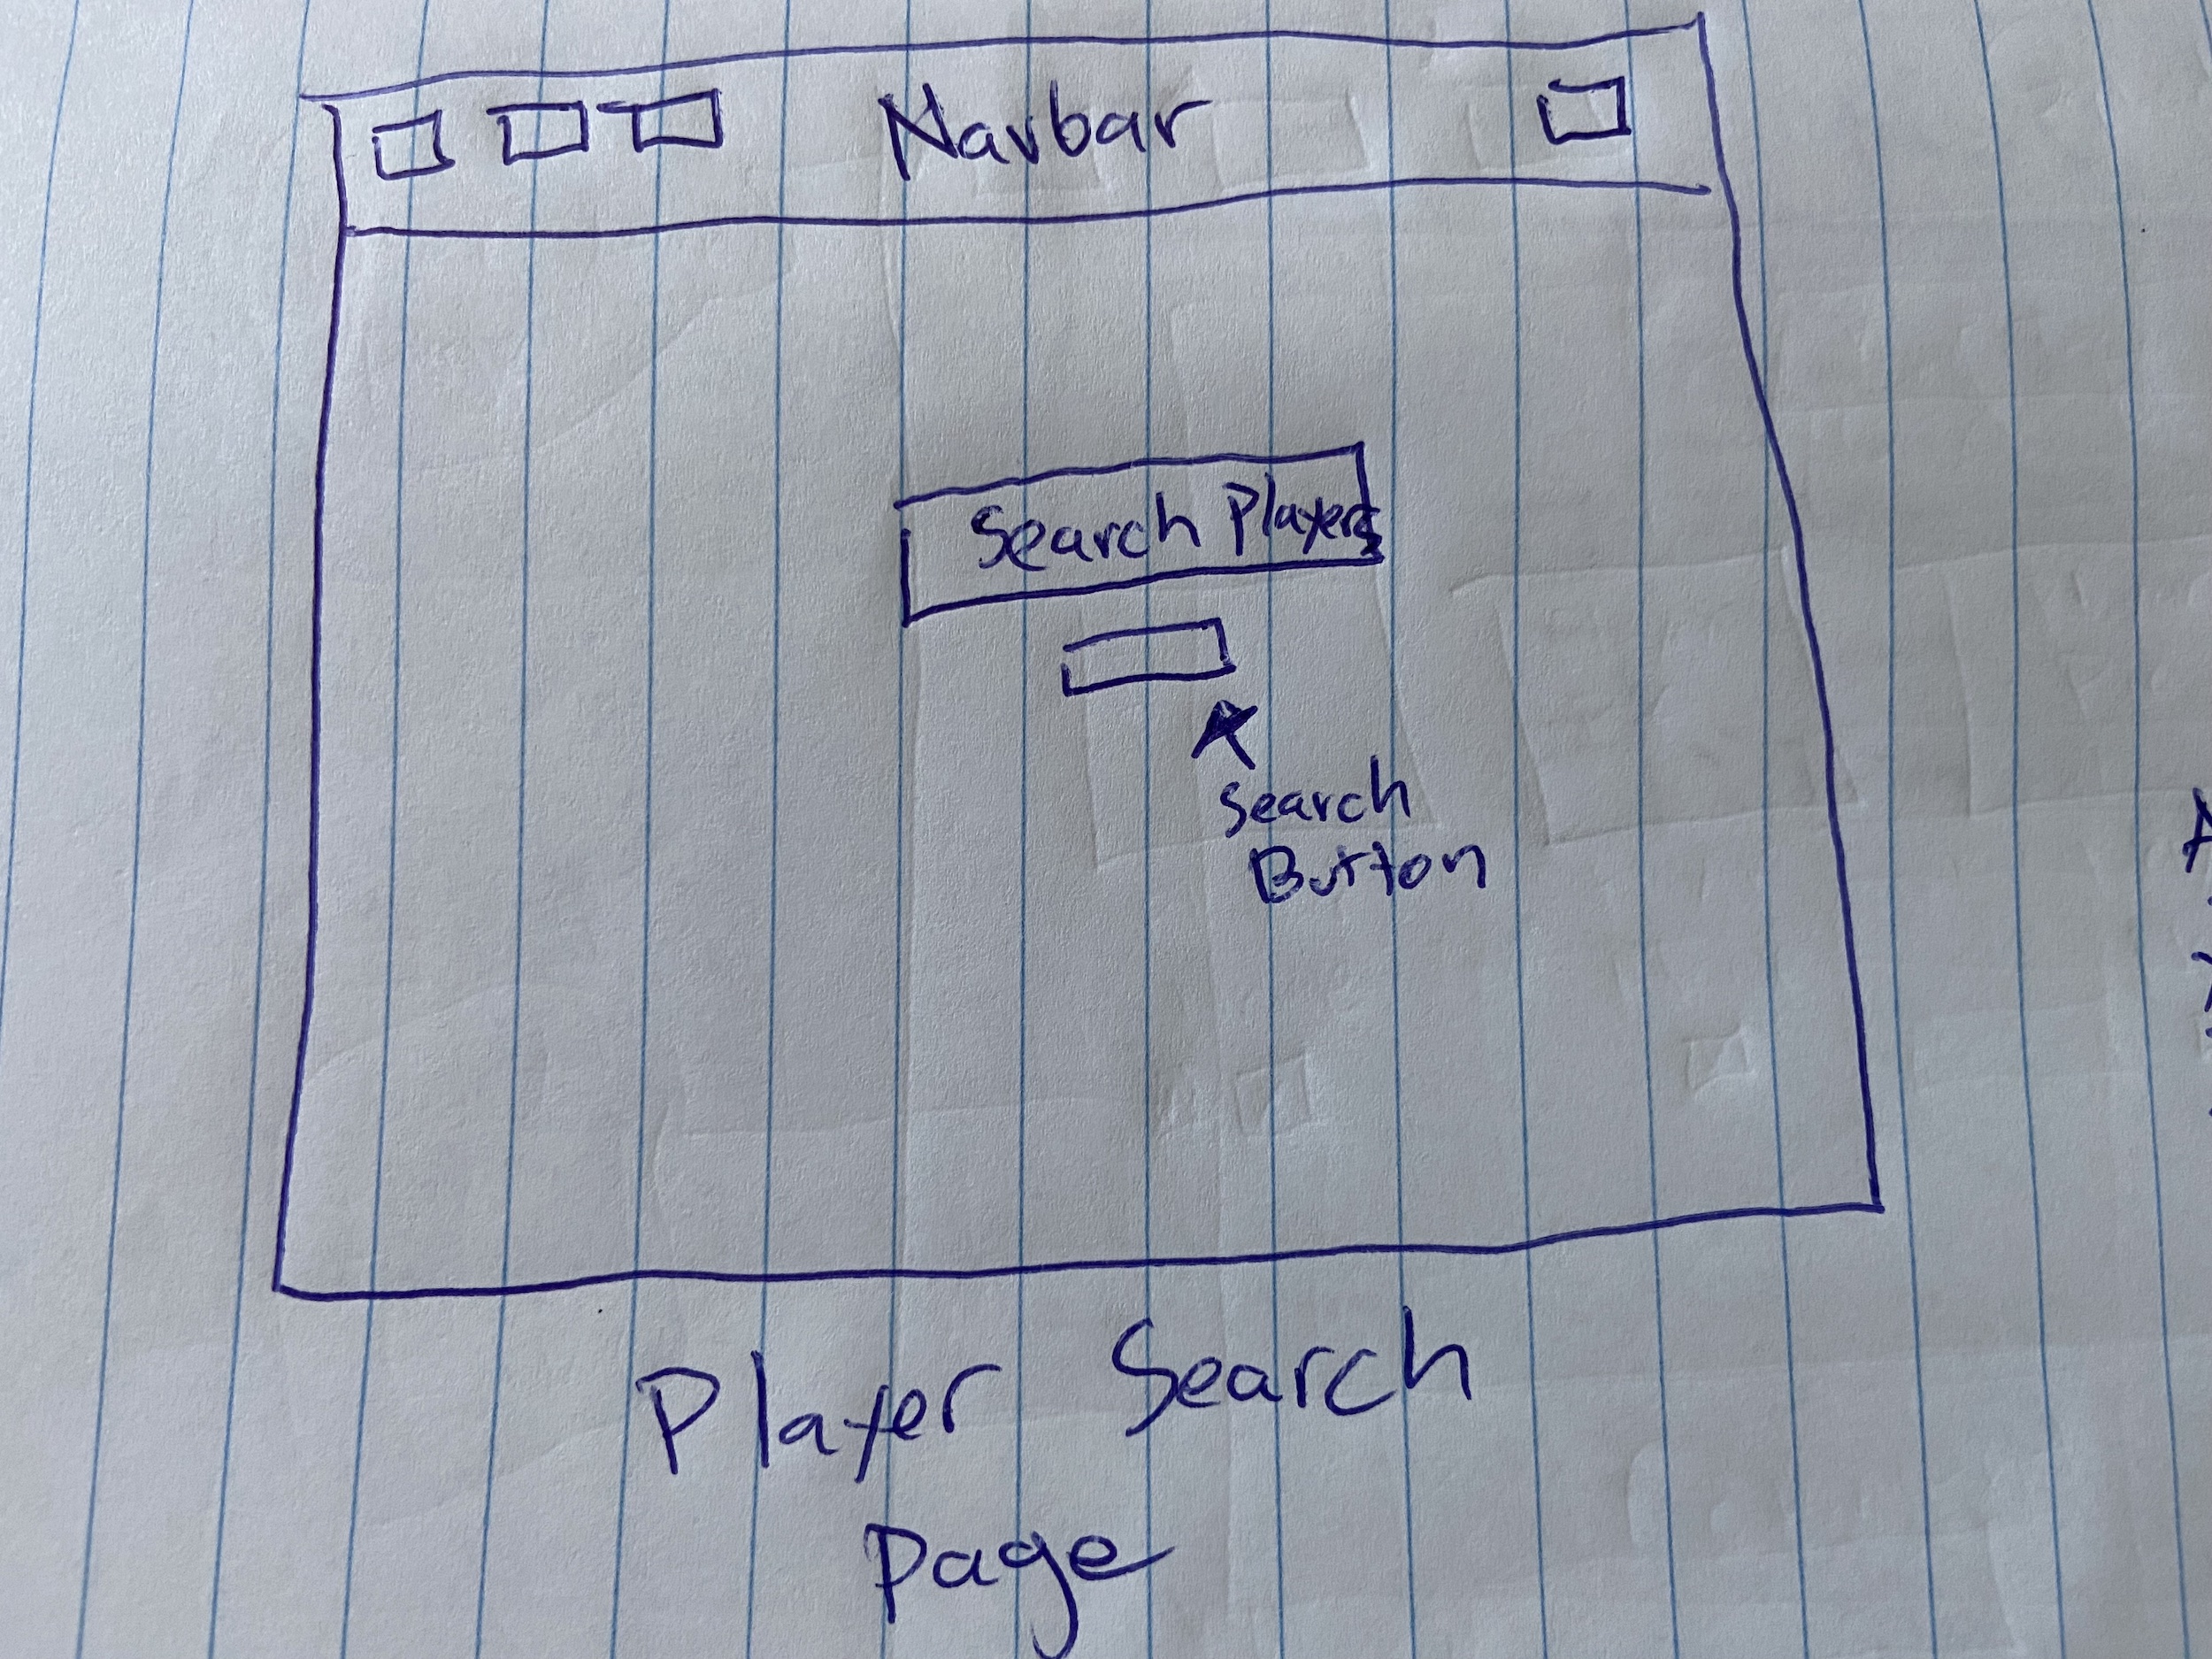 Navbar
Search Players
Search
Button
Player Search
Page